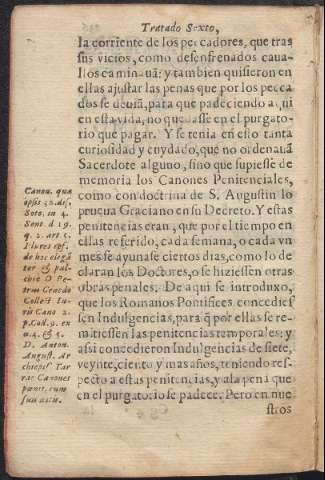 Tratado Sexto,
la corriente de los peccadores, que tras
sus vicios, como desenfrenados caua-
llos caminauã: y tambien quisieron en
ellas ajustar las penas que por los pecca
dos se deuiã, para que padeciendo aqui
en esta vida, no quedasse en el purgato-
rio que pagar. Y se tenia en esto tanta
curiosidad y cuydado, que no ordenauã
Sacerdote alguno, sino que supiesse de
memoria los Canones Penitenciales,
como con doctrina de S. Augustin lo
prueua Graciano en su Decreto. Y estas
penitencias eran, que por el tiempo en
ellas referido, cada semana, o cada vn
mes se ayunasse ciertos dias, como lo de
claran los Doctores, o se hiziessen otras
obras penales. De aqui se introduxo,
que los Romanos Pontifices concedies
sen Indulgencias, para q̃ por ellas se re-
mitiessen las penitencias temporales: y
assi concedieron Indulgencias de siete,
veynte, ciento y mas años, teniendo res-
pecto a estas penitencias, y a la pena que
en el purgatorio se padece. Pero en nue
stros
Canon. quæ
ipsis 38. dis.
Soto, in 4.
Sent. d 19.
q. 2. art. 1.
Plures
de hoc elegã
ter &
D. Pe-
trum
Collect. Iu-
ris Cano 2.
p. 9. ex
n. 4. & 5.
D. Anton.
August. Ar
chiepis. Tar
rac. Canones
pœnit. cum
suis